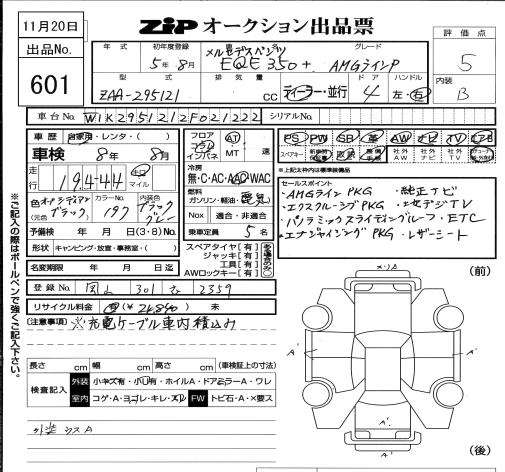 11月20日
ZIP オークション出品票
出品No.
601
年式
初年度登録
5年8月
車名
メルセデスベンツ
EQE 350+
グレード
AMGラインP
評価点
5
型式
ZAA-295121
排気量
CC
ディーラー・並行
ドア
4
ハンドル
左・右
内装
B
車台No.
W1K2951212F021222
シリアルNo.
車歴
自家用・レンタ・( )
車検
8年 8月
走行
19,444
マイル
色
オブシディアンブラック
(元色 )
カラーNo.
197
内装色
ブラック
グレー
予備検 年 月 日(3・8)No.
形状 キャンピング・放送・事務室・( )
名変期限 年 月 日迄
フロア
フラット
インパネ
AT
MT
速
冷房
無・C・AC・AAC・WAC
燃料
ガソリン・軽油・電気
Nox
適合・非適合
乗車定員 5 名
スペアタイヤ[有]
ジャッキ[有]
工具[有]
AWロックキー[有]
PS
PW
SR
革
AW
ナビ
TV
エアB
スペアキー
取説
社外AW
社外ナビ
社外TV
*上記太枠内は標準装備品
セールスポイント
・AMGラインPKG ・純正ナビ
・エクスクルーシブPKG ・地デジTV
・パノラミックスライディングルーフ・ETC
・エナジャイジングPKG ・レザーシート
登録No. 岡山 301 2359
リサイクル料金 (¥ ) 未
(注意事項) ※充電ケーブル車内積込み
※ご記入の際はボールペンで強くご記入下さい。
長さ cm 幅 cm 高さ cm (車検証上の寸法)
検査記入
外装
小キズ有・小凹有・ホイルA・ドアミラーA・ワレ
室内
コゲ・A・ヨゴレ・キレ・スレ
FW
トビ石・A・×要ス
外装 ウスA
(前)
A'
A'
A'
(後)